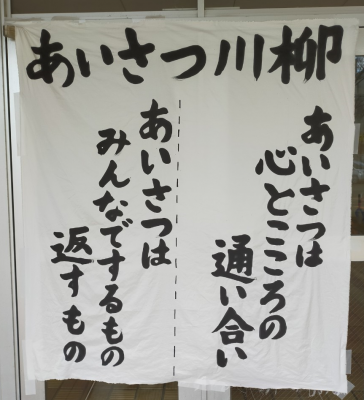 あいさつ川柳
あいさつは
心とこころの
通い合い
あいさつは
みんなでするもの
返すもの